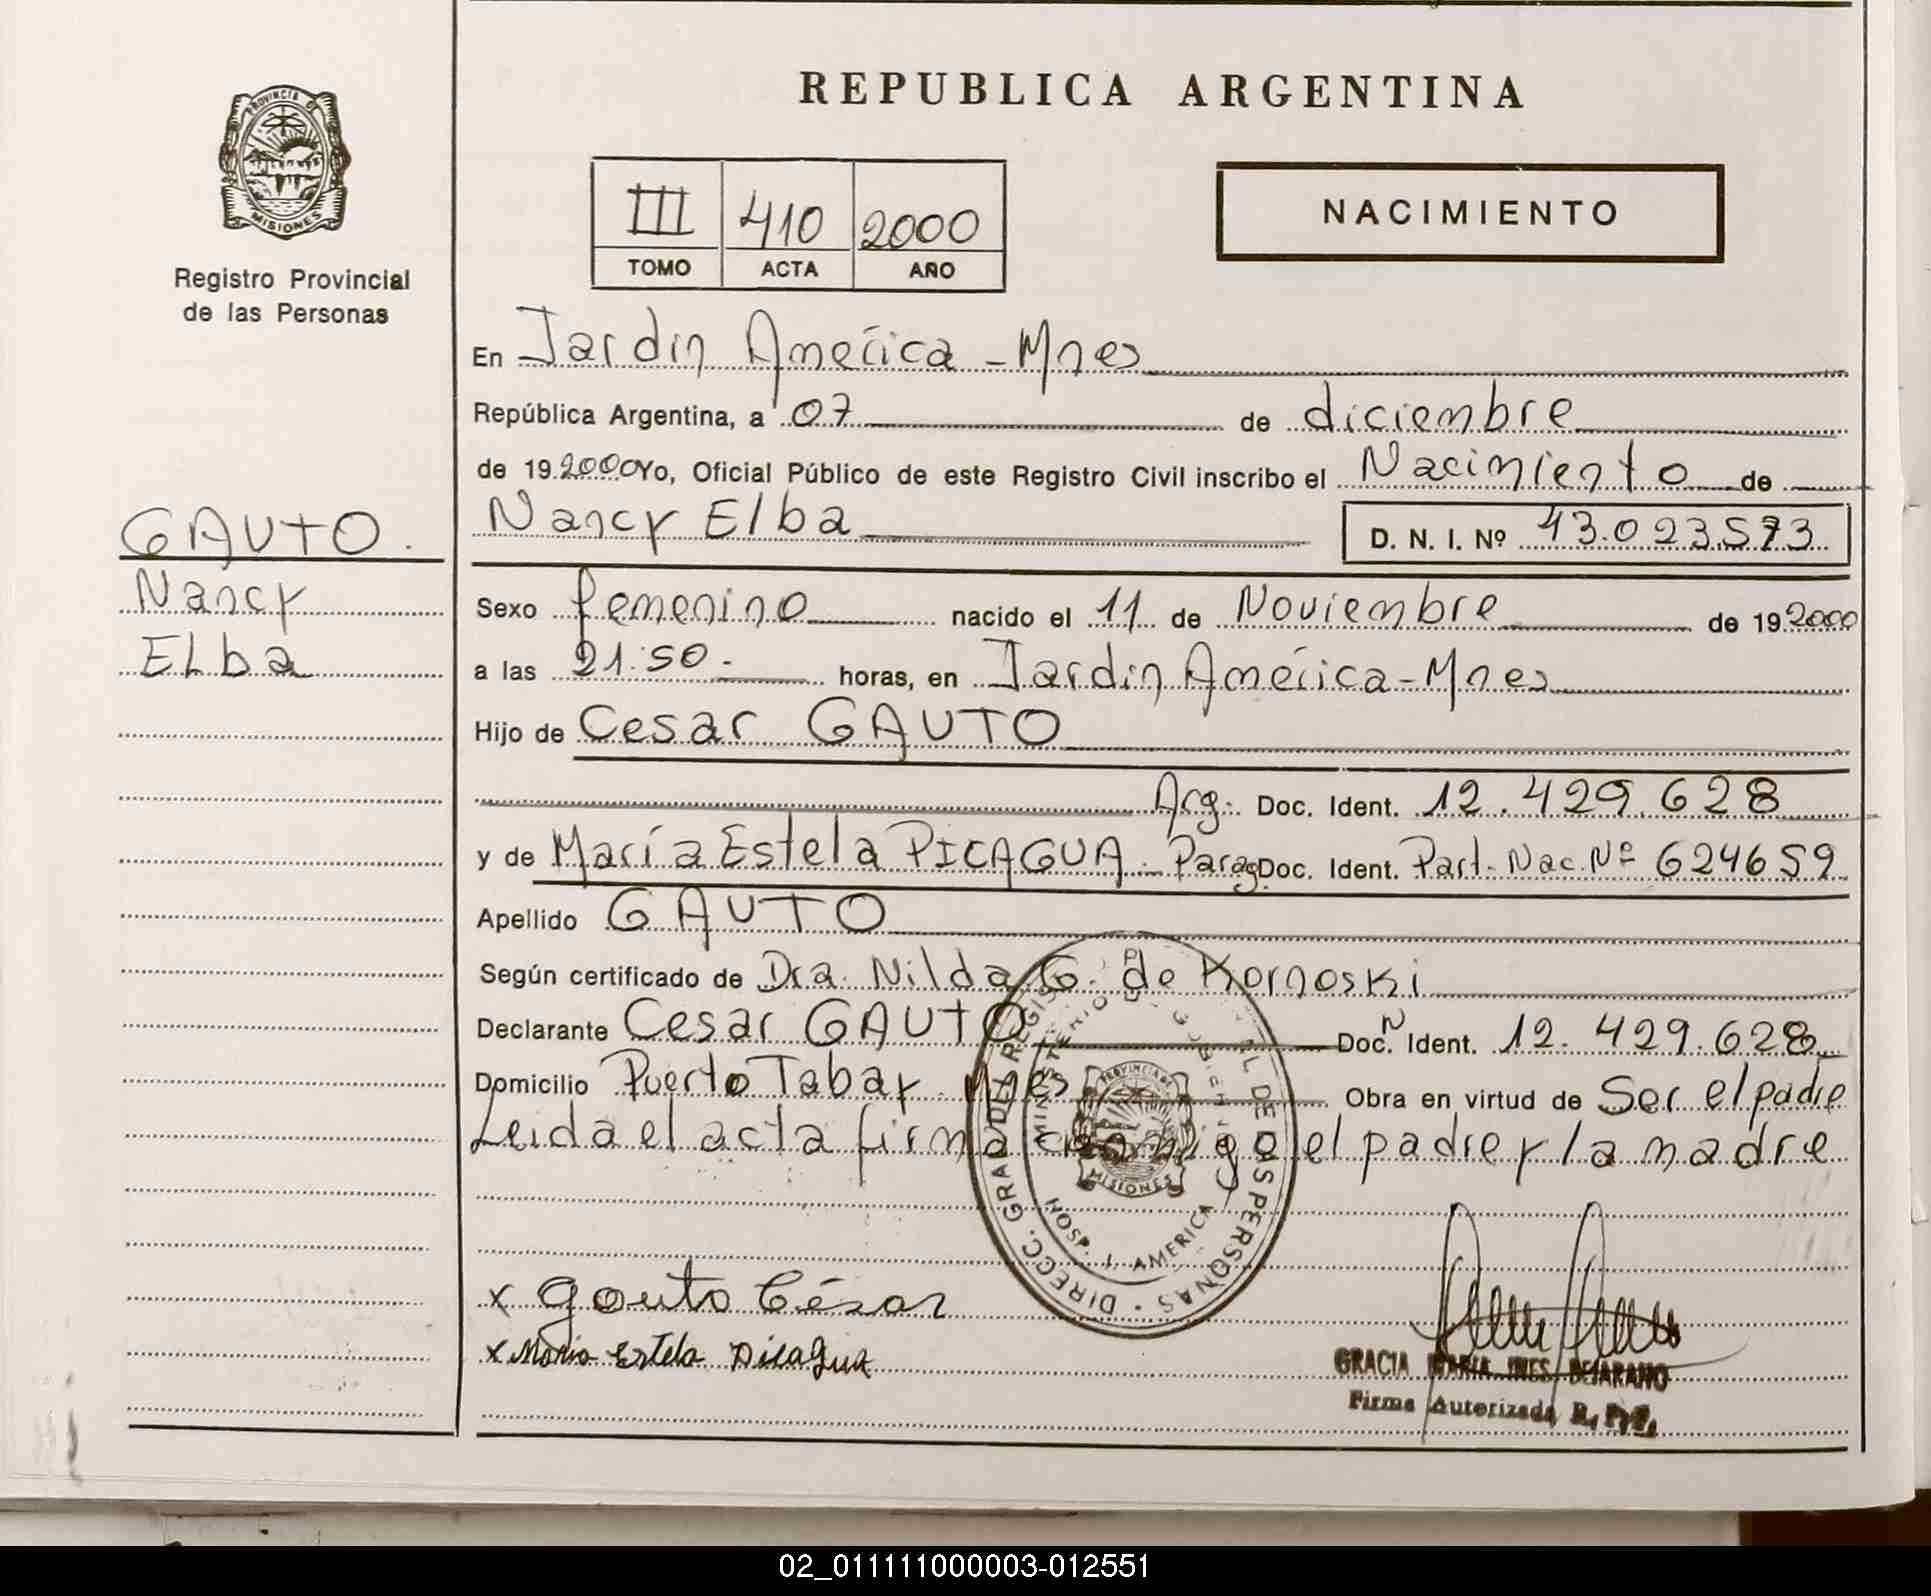 REPUBLICA ARGENTINA
PROVINCIA DE
MISIONES
Registro Provincial
de las Personas
III 410 2000
TOMO ACTA AÑO
NACIMIENTO
En Jardín América - Mnes
República Argentina, a 07 de diciembre
de 19 2000 Yo, Oficial Público de este Registro Civil inscribo el Nacimiento de
Nancy Elba D. N. I. Nº 43.023.573
GAUTO.
Nancy
ELba
Sexo femenino nacido el 11 de Noviembre de 19 2000
a las 21:50.- horas, en Jardín América - Mnes
Hijo de Cesar GAUTO
Arg. Doc. Ident. 12.429.628
y de María Estela PICAGUA.- Parag. Doc. Ident. Part. Nac. Nº 624659
Apellido GAUTO
Según certificado de Dra. Nilda G. de Kornoski
Declarante Cesar GAUTO Doc. N Ident. 12.429.628
Domicilio Puerto Tabay Mnes Obra en virtud de Ser el padre
Leida el acta firma conmigo el padre y la madre
DIRECC. GRAL. DEL REGIS DE LAS PERSONAS
MINISTERIO DE GOBIERN
PROVINCIA DE
MISIONES
HOSP. J. AMERICA
x Gauto César
x Maria Estela Picagua
GRACIA MARIA INES BEJARANO
Firma Autorizada R. P. P.
02_011111000003-012551